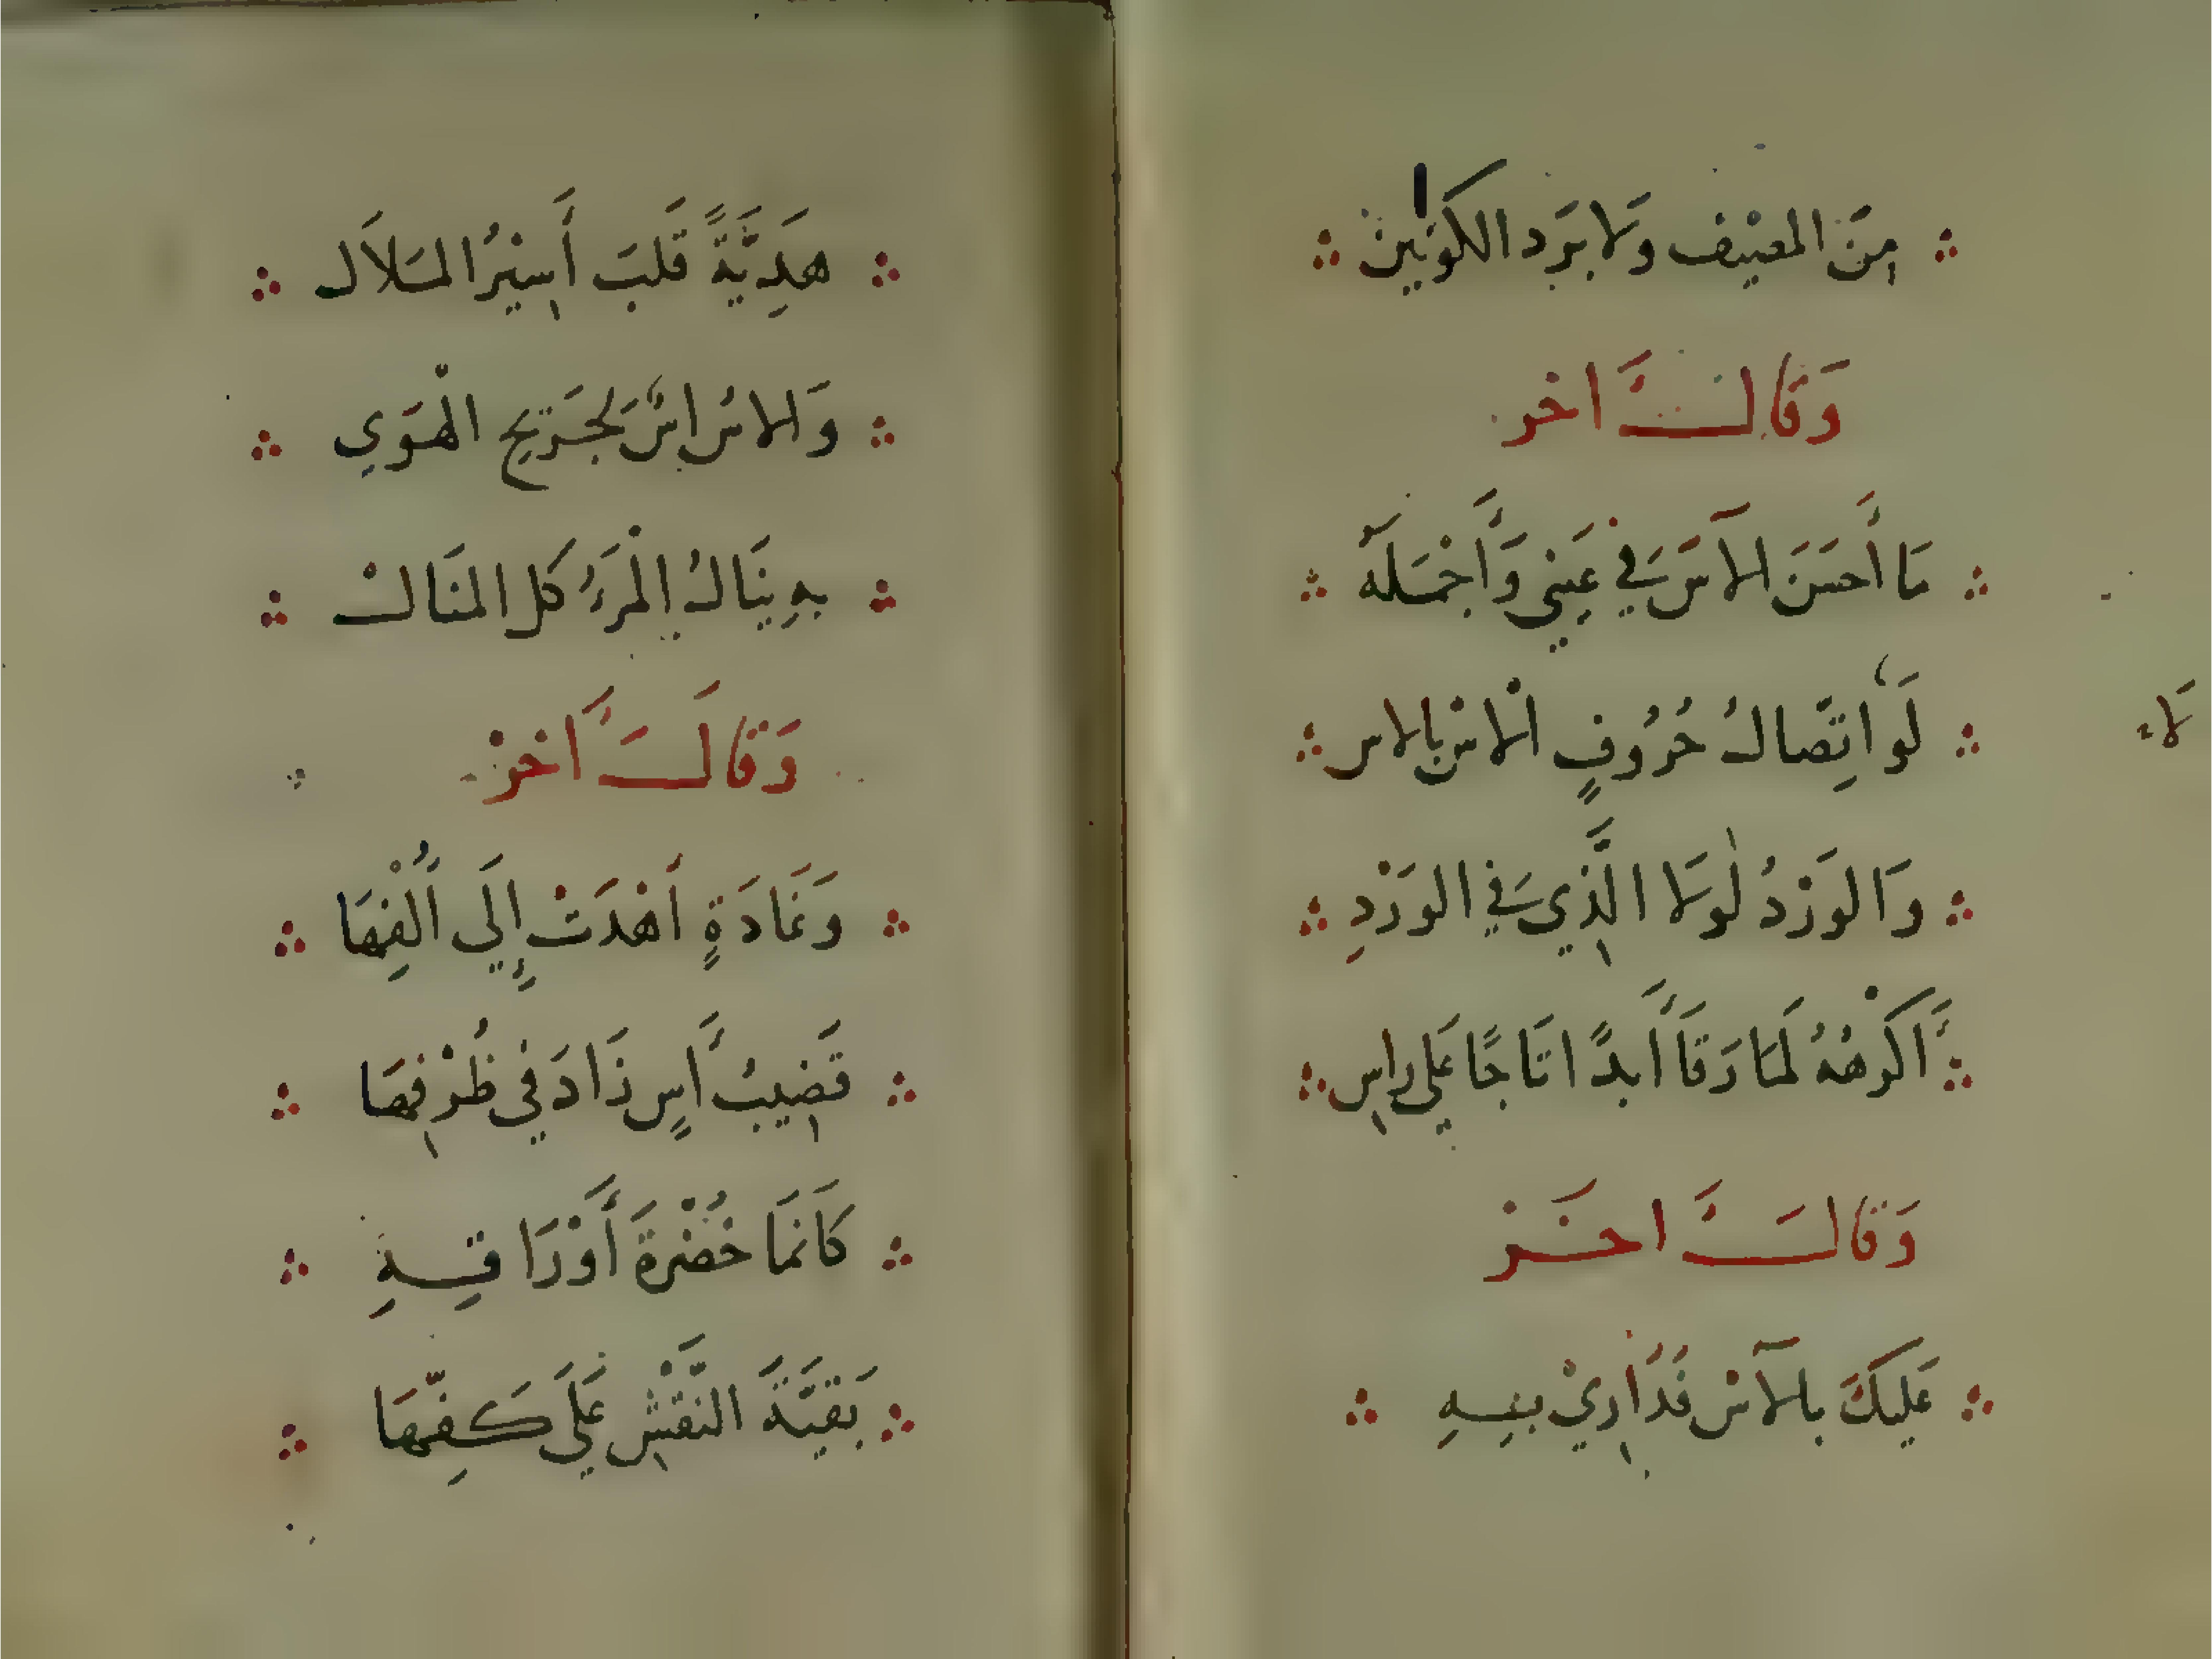 مِنَ المصيْف وَلَا بَرَد الكوَنين
وَقَالَ اخر
مَا أَحسَنَ الآسَ في عَيني وَأَجْمَلَهُ
لَوْ اتِصَالُ حُرُوفٍ الْاسْ بالاس
لَاء
وَالوَرْدُ لَولَا الَّذِي في الوَرْدِ
أَكْرَهُهُ لَمَا رَقَا أَبدًا تَاجًا عَلي رَاسِ
وَقَالَ اخَرْ
عَلَيكَ بالآسْ فَدَارِيْ بِهِ
هَدِيَّةً قَلبَ أَسِيْرُ المَلَالَ
وَالاسُ اسٌ لجَرَيح الْهَوَي
بِهِ يَنَالُ الْمَرَءُ كل المنَالْ
وَقَالَ آخرْ
وَغَادَةٍ أَهْدَتْ إِلَي أُلْفِهَا
قَضِيبُ أَسٍ زَادَ فِي ظُرْفِهَا
كَانَمَا خُضْرةَ أَوْرَاقِهِ
بَقيَّةَ النَّقْشِ عَلَي كَفِّهَا